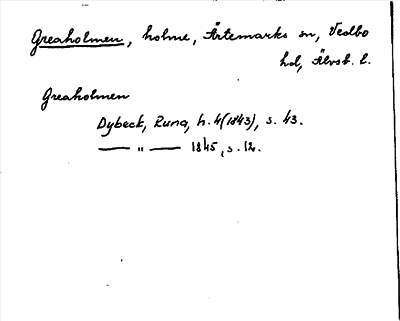 Greaholmen, holme, Ärtemarks sn, Vedbo
hd, Älvsb. l.
Greaholmen
Dybeck, Runa, h. 4 (1843), s. 43.
— " — 1845, s. 12.